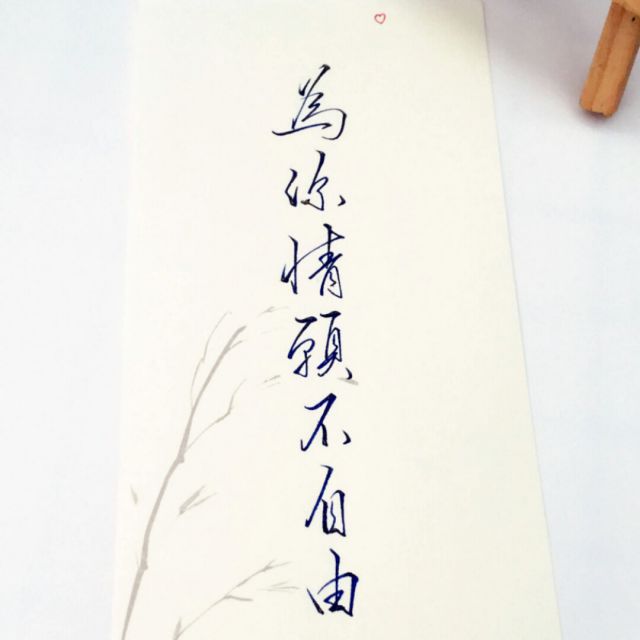 為你情願不自由